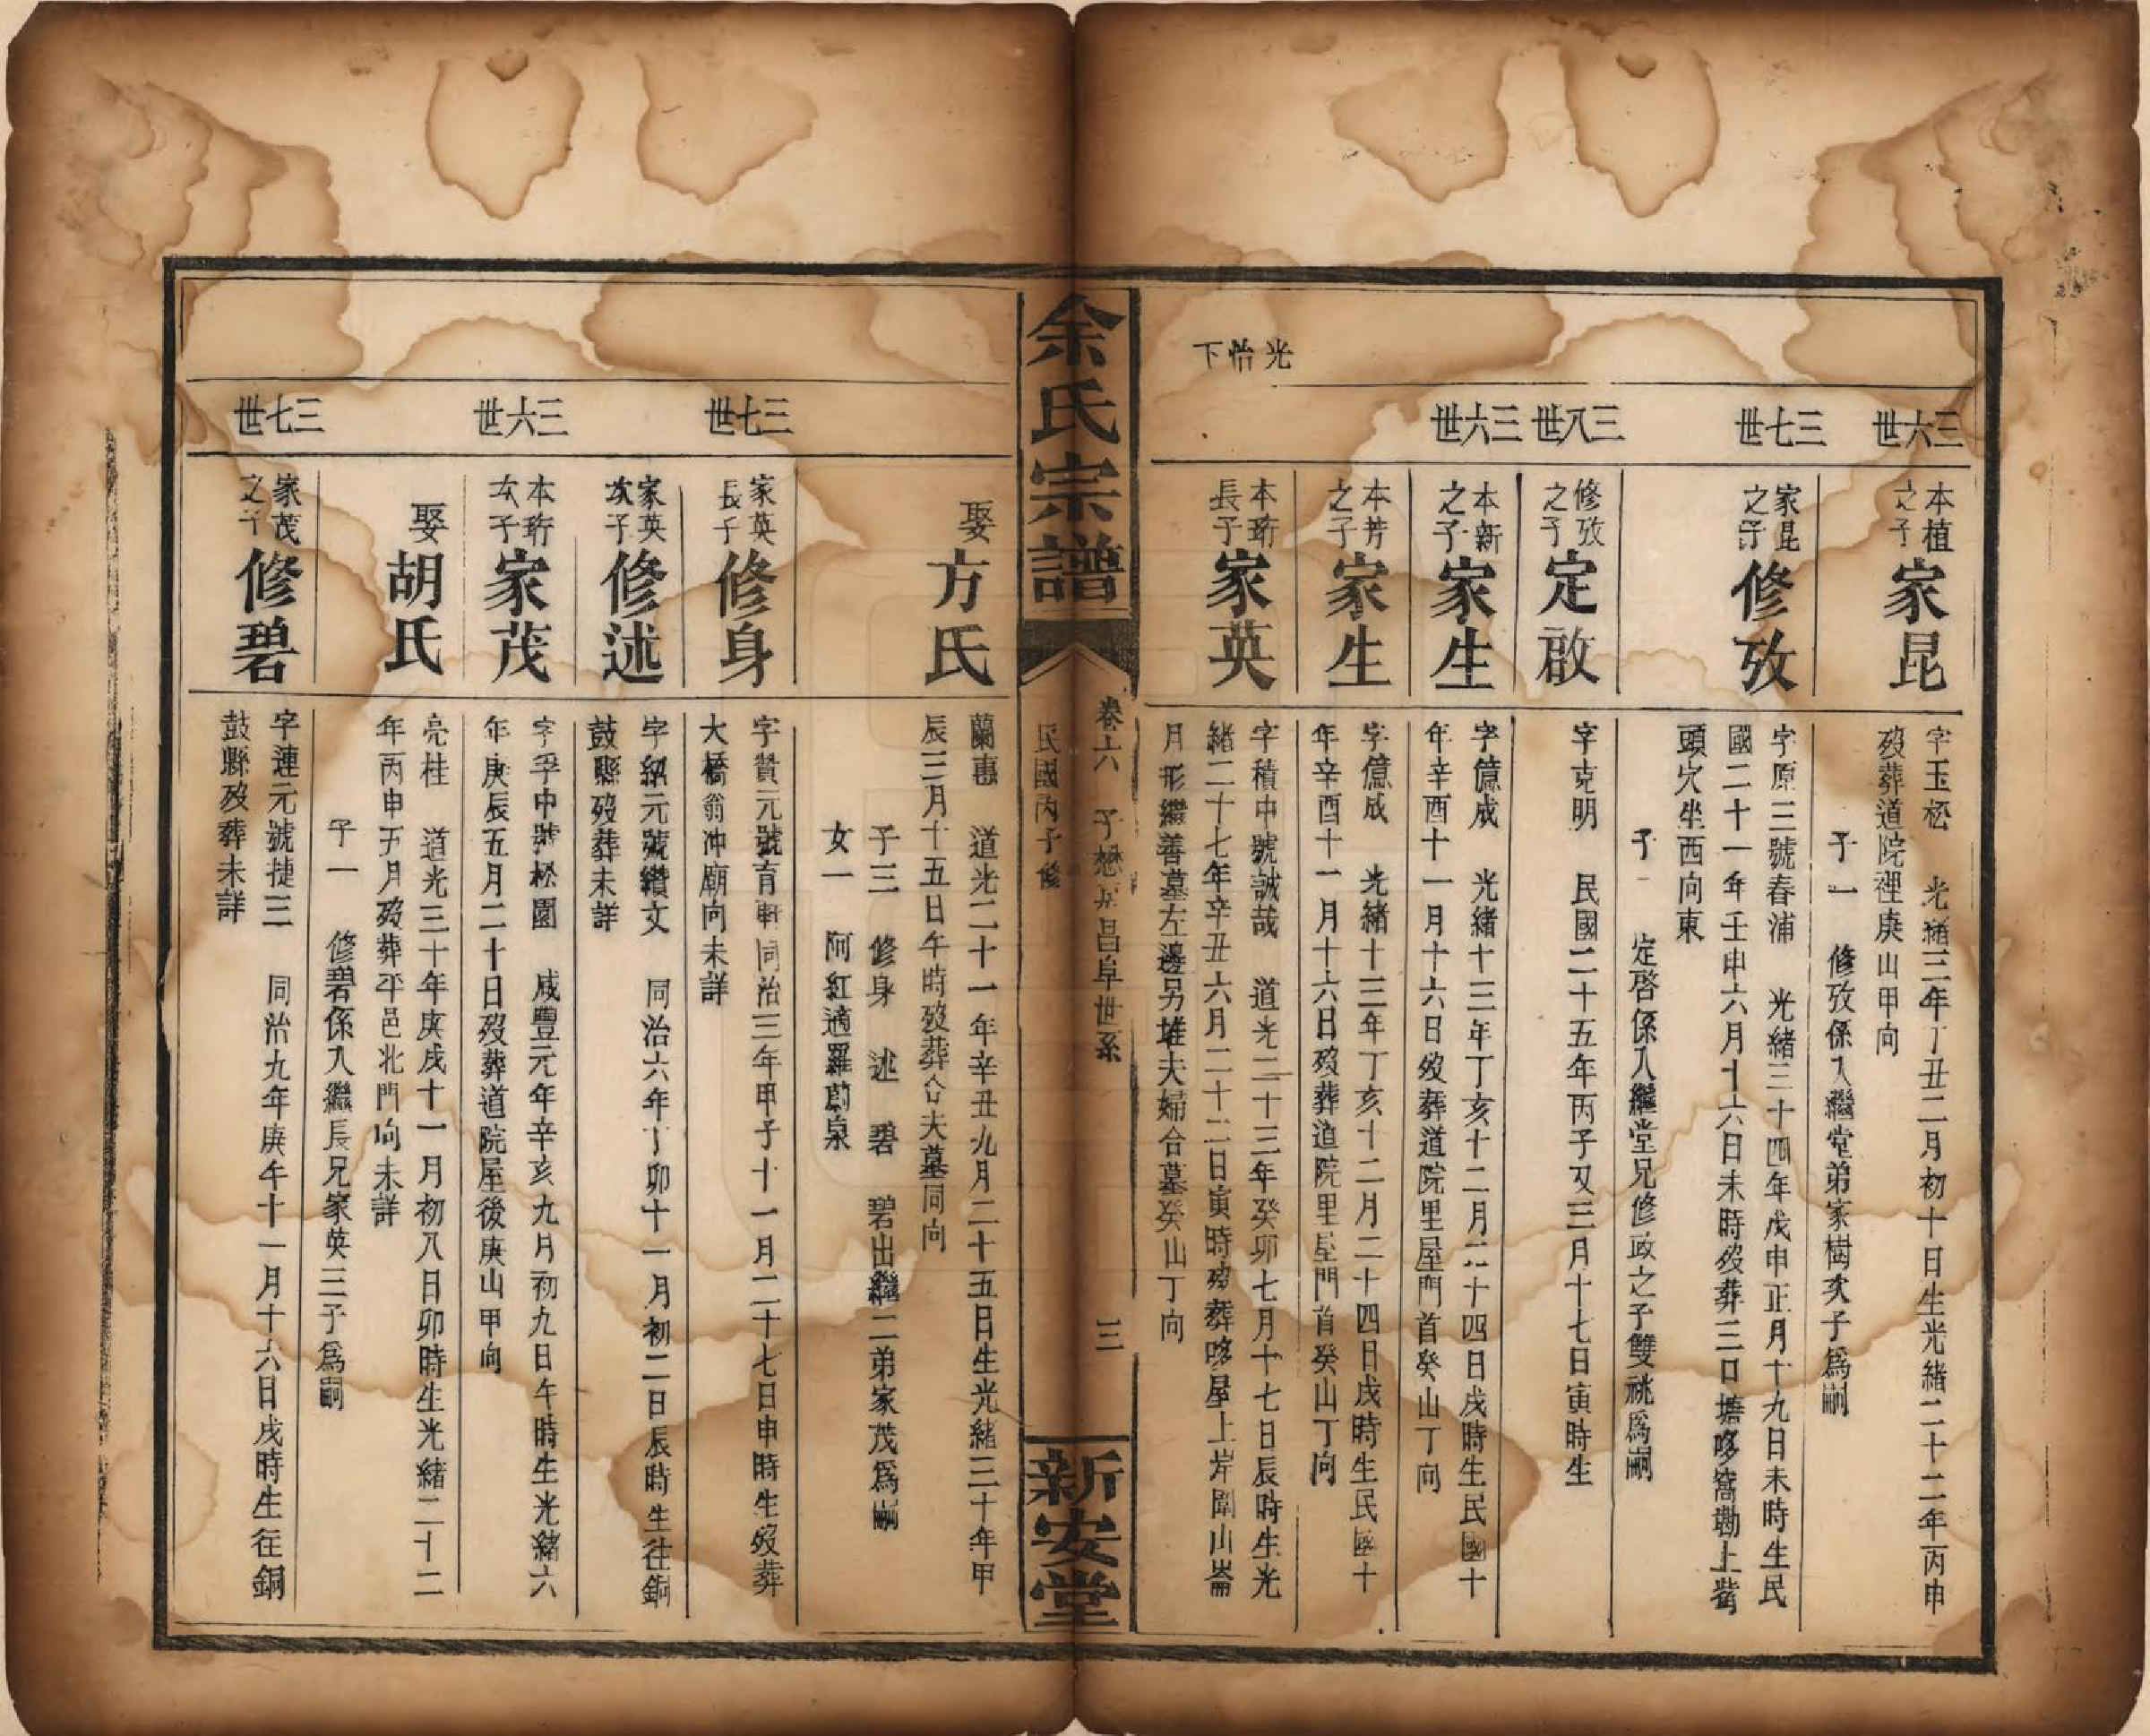 光怡下
三六世
本植之子
家昆
字玉松 光緒三年丁丑二月初十日生光緒二十二年丙申
歿葬道院裡庚山甲向
子一 修攷係入繼堂弟家樹次子爲嗣
三七世
家昆之子
修攷
字原三號春浦 光緒三十四年戊申正月十九日未時生民
國二十一年壬申六月十六日未時歿葬三口塘
頭穴坐西向東
子一 定啓係入繼堂兄修政之子雙祧爲嗣
三八世
修攷之子
定啟
字克明 民國二十五年丙子又三月十七日寅時生
三六世
本新之子
家生
字億成 光緒十三年丁亥十二月二十四日戌時生民國十
年辛酉十一月十六日歿葬道院里屋門首癸山丁向
本芳之子
家生
字億成 光緒十三年丁亥十二月二十四日戌時生民國十
年辛酉十一月十六日歿葬道院里屋門首癸山丁向
本珩長子
家英
字積中號誠哉 道光二十三年癸卯七月十七日辰時生光
緒二十七年辛丑六月二十二日寅時歿葬哆屋上岸闈山崙
月形繼善墓左邊另堆夫婦合墓癸山丁向
余氏宗譜
卷六 子懋公昌阜世系 三
民國丙子修
新安堂
娶
方氏
蘭惠 道光二十一年辛丑九月二十五日生光緒三十年甲
辰三月十五日午時歿葬合夫墓同向
子三 修身 述 碧 碧出繼二弟家茂爲嗣
女一 阿紅適羅蔚泉
三七世
家英長子
修身
字贊元號育軒同治三年甲子十一月二十七日申時生歿葬
大橋翁沖廟向未詳
家英次子
修述
字紹元號纘文 同治六年丁卯十一月初二日辰時生往銅
鼓縣歿葬未詳
三六世
本珩次子
家茂
字孚中號松園 咸豐元年辛亥九月初九日午時生光緒六
年庚辰五月二十日歿葬道院屋後庚山甲向
娶
胡氏
亮桂 道光三十年庚戌十一月初八日卯時生光緒二十二
年丙申五月歿葬平邑北門向未詳
子一 修碧係入繼長兄家英三子爲嗣
三七世
家茂之子
修碧
字連元號捷三 同治九年庚午十一月十六日戌時生往銅
鼓縣歿葬未詳